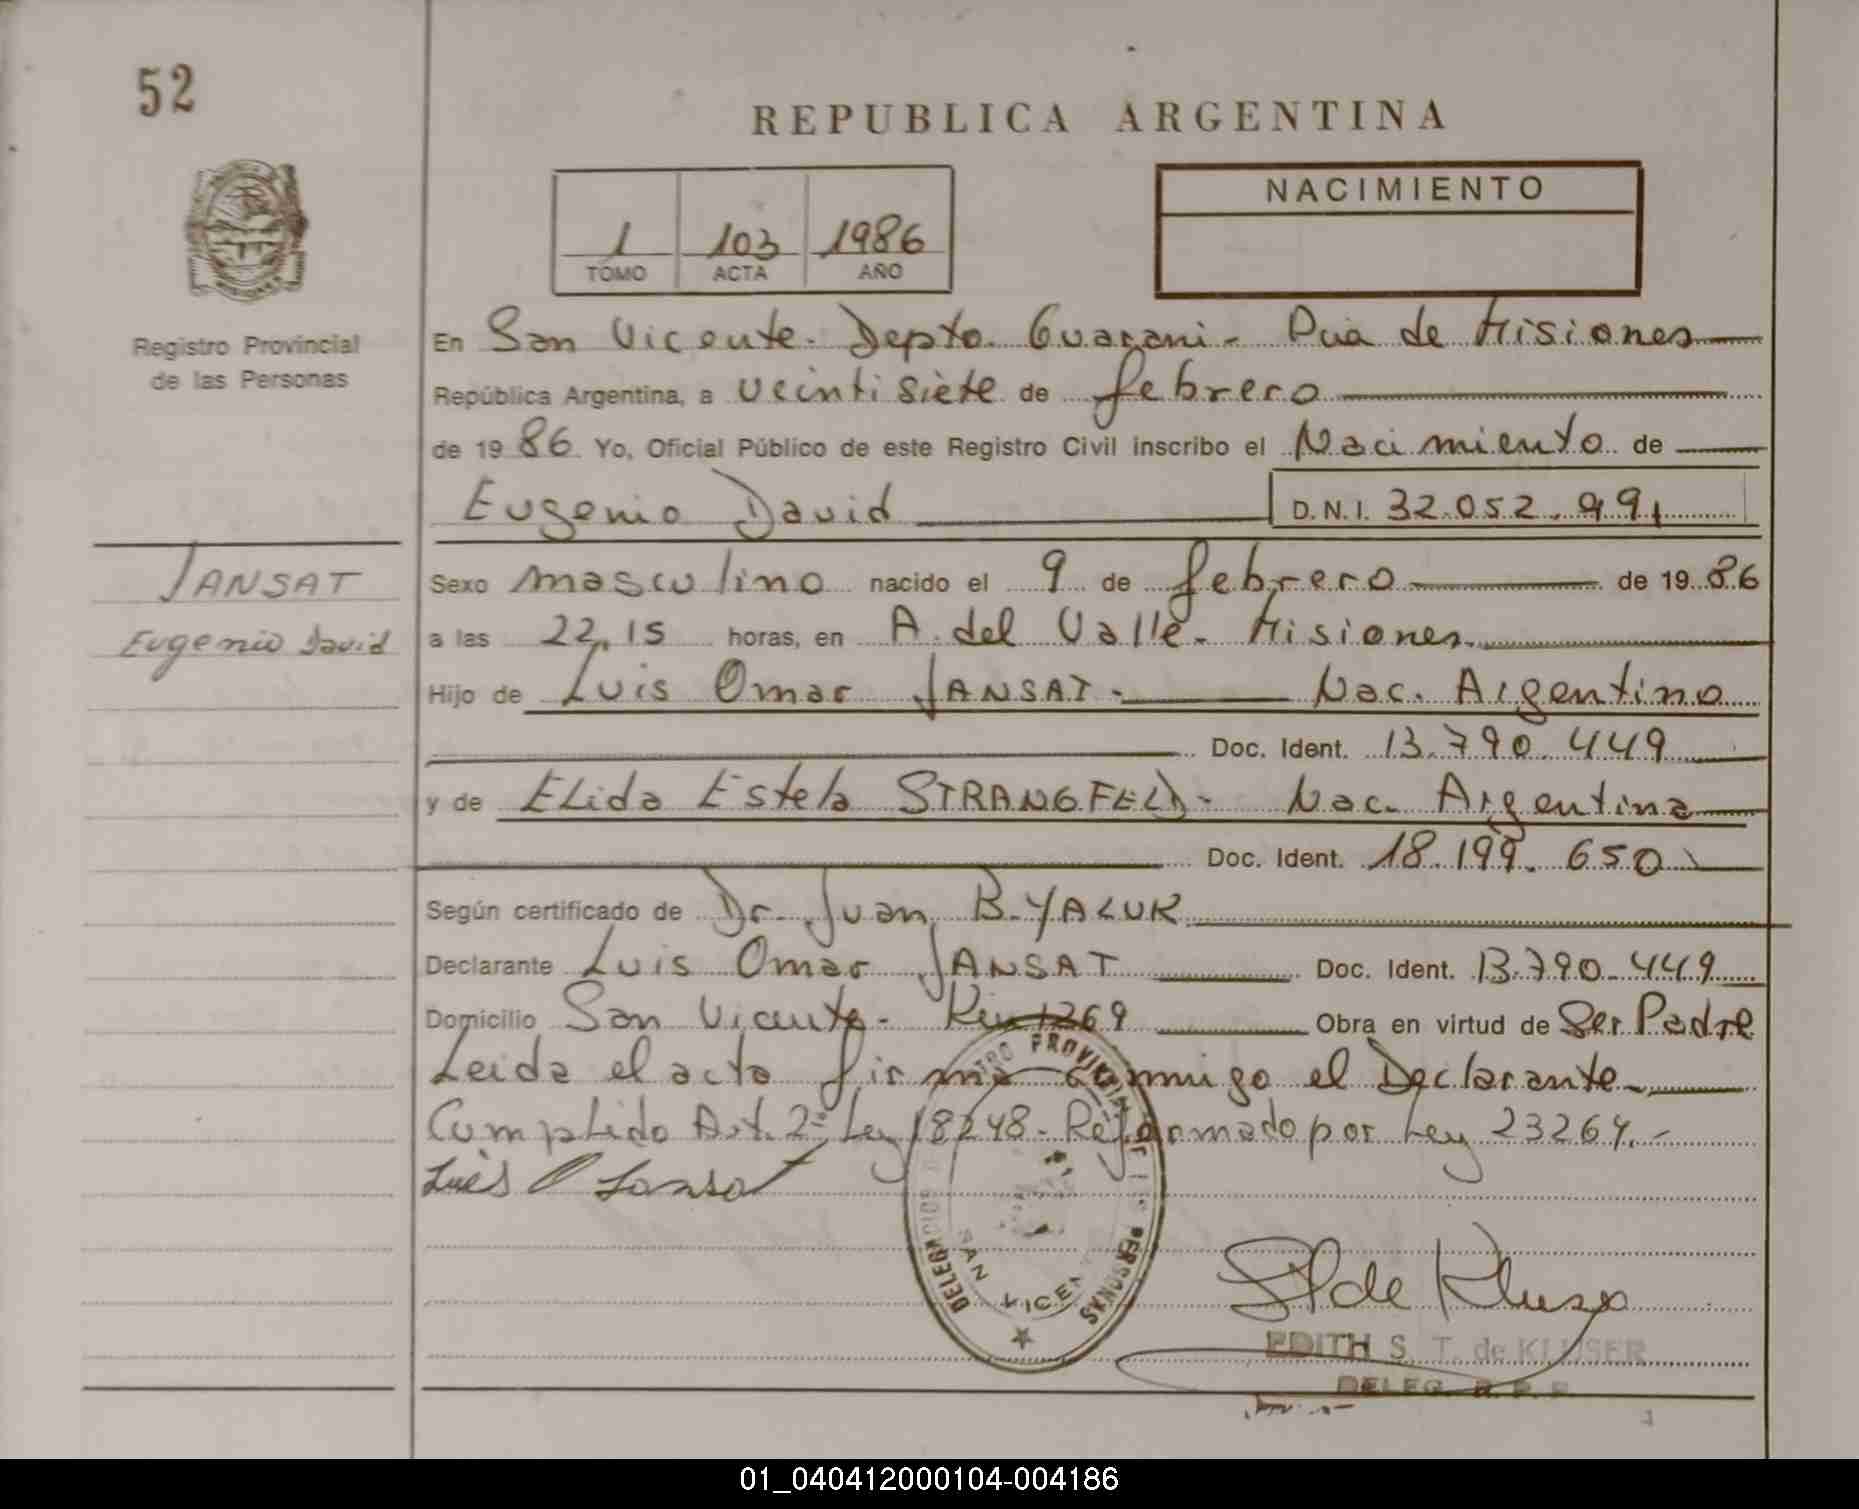 52
REPUBLICA ARGENTINA
1 103 1986
TOMO ACTA AÑO
NACIMIENTO
Registro Provincial
de las Personas
En San Vicente. Depto. Guarani - Pcia de Misiones
República Argentina, a veintisiete de febrero
de 19 86 Yo, Oficial Público de este Registro Civil inscribo el Nacimiento de
Eugenio David D.N.I. 32.052.991
JANSAT
Eugenio David
Sexo masculino nacido el 9 de febrero de 19 86
a las 22,15 horas, en A. del Valle - Misiones.
Hijo de Luis Omar JANSAT - Nac. Argentino
Doc. Ident. 13.790.449
y de Elida Estela STRANGFELD - Nac. Argentina
Doc. Ident. 18.199.650
Según certificado de Dr. Juan B. YALUK
Declarante Luis Omar JANSAT Doc. Ident. 13.790.449
Domicilio San Vicente - 1269 Obra en virtud de Ser Padre
Leida el acta firma conmigo el Declarante
Cumplido Art. 2º Ley 18248 - Reformado por Ley 23264. -
Luis O Jansat
DELEGACION SAN VICENTE
PERSONAS
EDITH S. T. de KLUSER
DELEG. R. P. P.
01_040412000104-004186